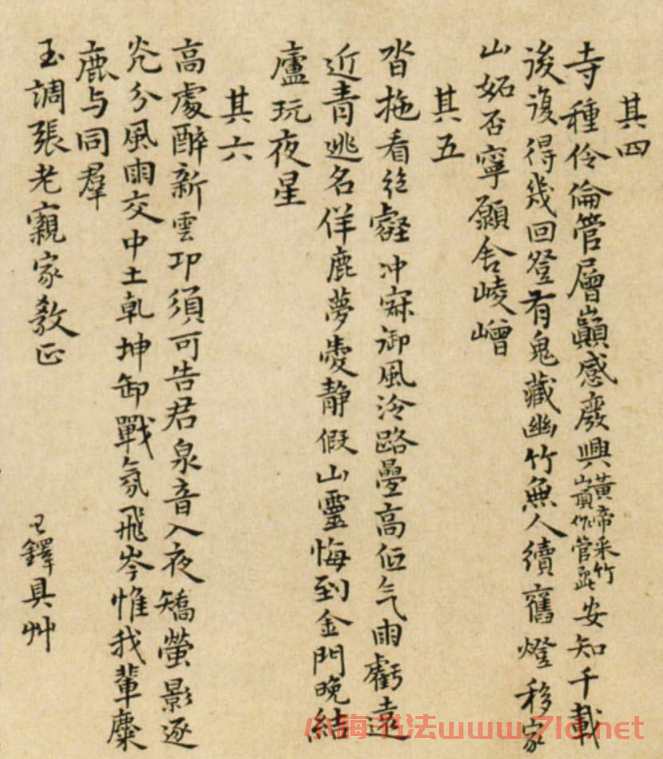 其四
寺種伶倫管層巔感廢興黃帝采竹山頂作管處安知千載
後復得幾回登有鬼藏幽竹無人續舊燈移家
山妬否寧願舍崚嶒
其五
沓拖看絶壑沖寐御風泠路疊高低气雨虧遠
近青逃名佯鹿夢愛靜假山靈悔到金門晚結
廬玩夜星
其六
高處醉新雲卭須可告君泉音入夜矯螢影逐
光分風雨交中土乾坤卸戰氛飛岑惟我輩麋
鹿与同羣
玉調張老親家教正
王鐸具艸
小海书法www.71c.net